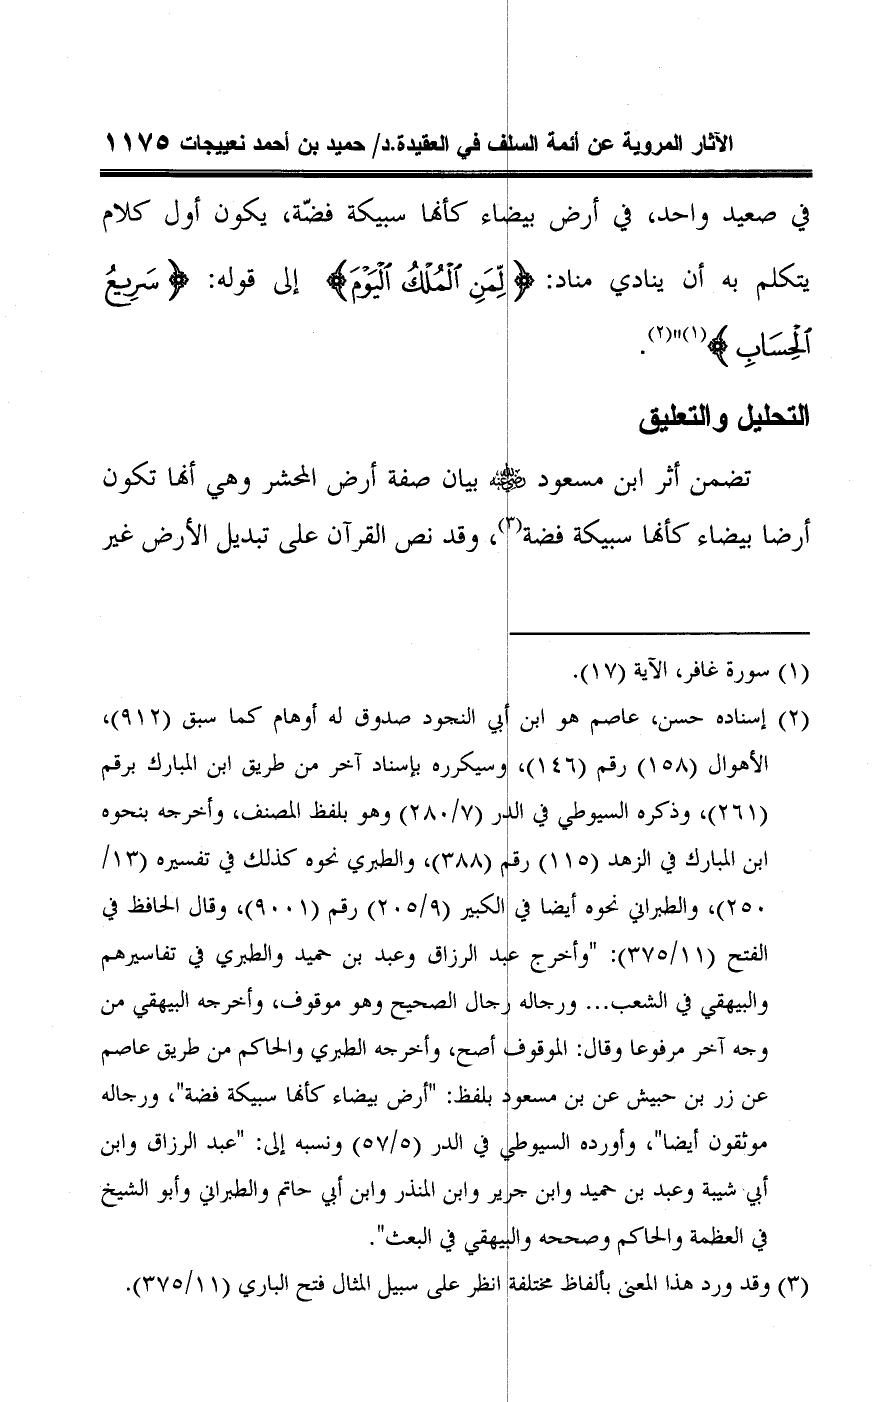 الآثار المروية عن أئمة السلف في العقيدة.د/ حميد بن أحمد نعييجات ١١٧٥
في صعيد واحد، في أرض بيضاء كأنها سبيكة فضّة، يكون أول كلام
يتكلم به أن ينادي مناد: ﴿لِّمَنِ ٱلْمُلْكُ ٱلْيَوْمَ﴾ إلى قوله: ﴿سَرِيعُ
ٱلْحِسَابِ﴾(١)"(٢).
التحليل والتعليق
تضمن أثر ابن مسعود ﵁ بيان صفة أرض المحشر وهي أنها تكون
أرضا بيضاء كأنها سبيكة فضة(٣)، وقد نص القرآن على تبديل الأرض غير
(١) سورة غافر، الآية (١٧).
(٢) إسناده حسن، عاصم هو ابن أبي النجود صدوق له أوهام كما سبق (٩١٢)،
الأهوال (١٥٨) رقم (١٤٦)، وسيكرره بإسناد آخر من طريق ابن المبارك برقم
(٢٦١)، وذكره السيوطي في الدر (٢٨٠/٧) وهو بلفظ المصنف، وأخرجه بنحوه
ابن المبارك في الزهد (١١٥) رقم (٣٨٨)، والطبري نحوه كذلك في تفسيره (١٣/
٢٥٠)، والطبراني نحوه أيضا في الكبير (٢٠٥/٩) رقم (٩٠٠١)، وقال الحافظ في
الفتح (٣٧٥/١١): "وأخرج عبد الرزاق وعبد بن حميد والطبري في تفاسيرهم
والبيهقي في الشعب... ورجاله رجال الصحيح وهو موقوف، وأخرجه البيهقي من
وجه آخر مرفوعا وقال: الموقوف أصح، وأخرجه الطبري والحاكم من طريق عاصم
عن زر بن حبيش عن بن مسعود بلفظ: "أرض بيضاء كأنها سبيكة فضة"، ورجاله
موثقون أيضا"، وأورده السيوطي في الدر (٥٧/٥) ونسبه إلى: "عبد الرزاق وابن
أبي شيبة وعبد بن حميد وابن جرير وابن المنذر وابن أبي حاتم والطبراني وأبو الشيخ
في العظمة والحاكم وصححه والبيهقي في البعث".
(٣) وقد ورد هذا المعنى بألفاظ مختلفة انظر على سبيل المثال فتح الباري (٣٧٥/١١).